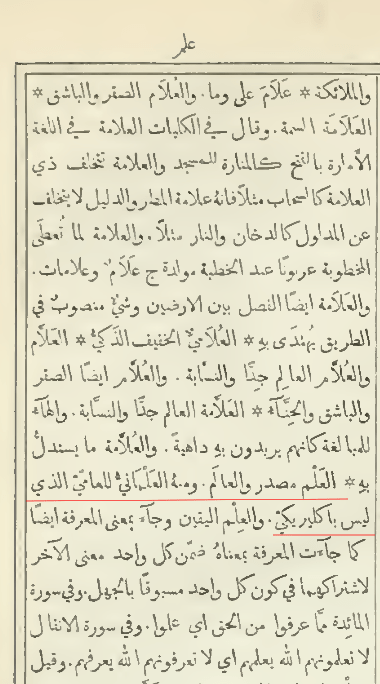 علم
والملائكة * عَلَامَ على وما. والعُلَام الصقر والباشق *
العَلَامَة السمة. وقال في الكليات العلامة في اللغة
الأمارة بالفتح كالمنارة للمسجد والعلامة تتخلف عن ذي
العلامة كالسحاب مثلًا فانهُ علامة المطر والدليل لا يتخلف
عن المدلول كالدخان والنار مثلًا. والعلامة لما تُعطَى
المخطوبة عربونًا عند الخطبة مولدة ج عَلَامٌ وعلامات.
والعلامة ايضًا الفصل بين الارضين وشيءٌ منصوبٌ في
الطريق يُهتدَى بهِ * العُلَاميُّ الخفيف الذَكيُّ * العَلَّام
والعُلَّام العالِم جدًّا والنسَّابة. والعُلَّام ايضًا الصقر
والباشق والحِنَّآء * العَلَّامة العالم جدًّا والنسَّابة. والهآء
للمبالغة كانهم يريدون بهِ داهيةً. والعُلَّامة ما يستدلُّ
بهِ * العَلْم مصدر والعالَم. ومنهُ العَلْمانيُّ للعاميّ الذي
ليس باكليريكيّ. والعِلْم اليقين وجآءَ بمعنى المعرفة ايضًا
كما جآءَت المعرفة بمعناهُ ضمّن كل واحد معنى الآخر
لاشتراكهما في كون كل واحد مسبوقًا بالجهل. وفي سورة
المائدة ممَّا عرفوا من الحق اي علموا. وفي سورة الانفال
لا تعلمونهم الله يعلمهم اي لا تعرفونهم الله يعرفهم. وقيل